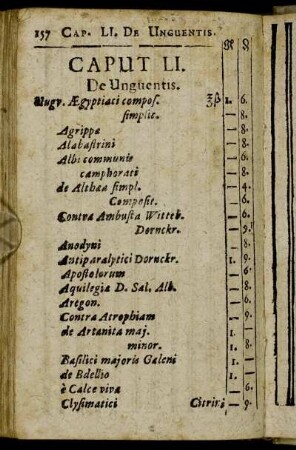 157 CAP. LI. DE UNGUENTIS.
CAPUT LI.
De Unguentis.
Ungv. Ægyptiaci compos. ℥β 1. 6.
simplic. — 8.
Agrippæ — 8.
Alabastrini — 8.
Albi communis — 6.
camphorati — 8.
de Althæa simpl. — 4.
Composit. — 6.
Contra Ambusta Witteb. — 6.
Dornckr. — 9.
Anodyni — 8.
Antiparalytici Dornckr. 1. —
Apostolorum — 8.
Aquilegiæ D. Sal. Alb. — 8.
Aregon. — 9.
Contra Atrophiam — 9.
de Artanita maj. 1. —
minor. — 8.
Basilici majoris Galeni 1. —
de Bdellio 1. —
è Calce viva — 6.
Clysmatici Citrini — 9.